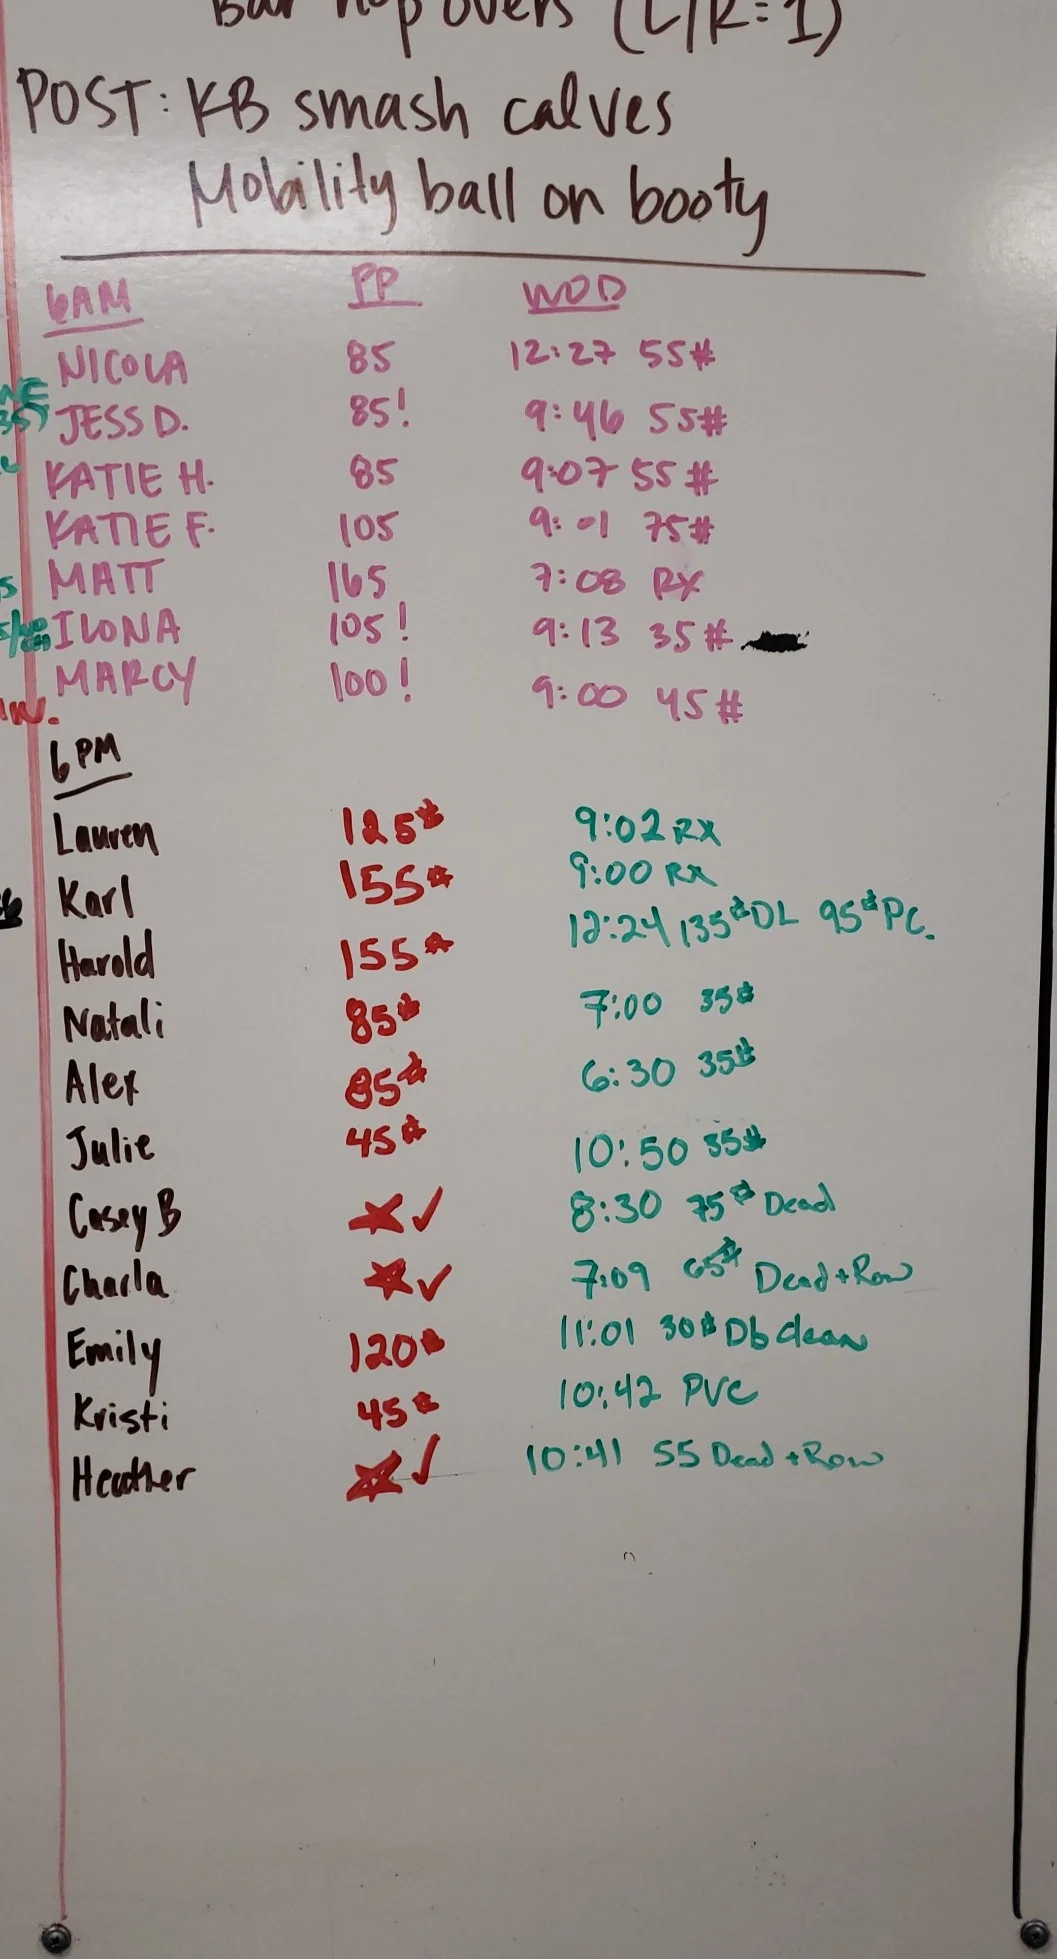 Bar hop overs (L/R=1)
POST: KB smash calves
Mobility ball on booty
6AM PP WOD
NICOLA 85 12:27 55#
JESS D. 85! 9:46 55#
KATIE H. 85 9:07 55#
KATIE F. 105 9:01 75#
MATT 165 7:08 RX
ILONA 105! 9:13 35#
MARCY 100! 9:00 45#
6PM
Lauren 125# 9:02 RX
Karl 155# 9:00 RX
Harold 155# 12:24 135# DL 95# PC.
Natali 85# 7:00 35#
Alex 85# 6:30 35#
Julie 45# 10:50 35#
Casey B ★ ✓ 8:30 75# Dead
Charla ★ ✓ 7:09 65# Dead + Row
Emily 120# 11:01 30# Db clean
Kristi 45# 10:42 PVC
Heather ★ ✓ 10:41 55 Dead + Row